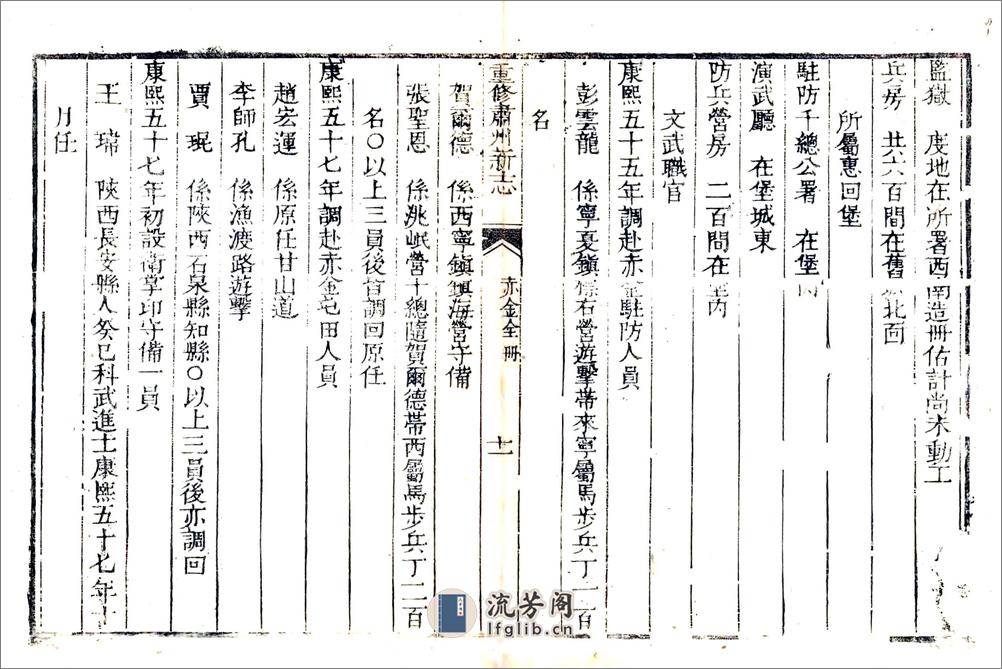 監獄　度地在所署西南造冊估計尚未動工
兵房　共六百間在舊城北面
所屬惠回堡
駐防千總公署　在堡內
演武廳　在堡城東
防兵營房　二百間在堡內
文武職官
康熙五十五年調赴赤金駐防人員
彭雲龍　係寧夏鎮標右營遊擊帶來寧屬馬步兵丁二百
名
重修肅州新志
赤金全冊
十一
賀爾德　係西寧鎮鎮海營守備
張聖恩　係洮岷營千總隨賀爾德帶西屬馬步兵丁二百
名〇以上三員後皆調回原任
康熙五十七年調赴赤金屯田人員
趙宏運　係原任甘山道
李師孔　係漁渡路遊擊
賈　琨　係陝西石泉縣知縣〇以上三員後亦調回
康熙五十七年初設衛掌印守備一員
王　瑞　陝西長安縣人癸巳科武進士康熙五十七年十
月任
流芳阁
lfglib.cn